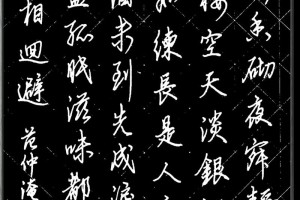 香砌夜寂静
樓空天淡銀
如練長是人
酒未到先成淚
盡孤眠滋味都
相迴避 范仲淹